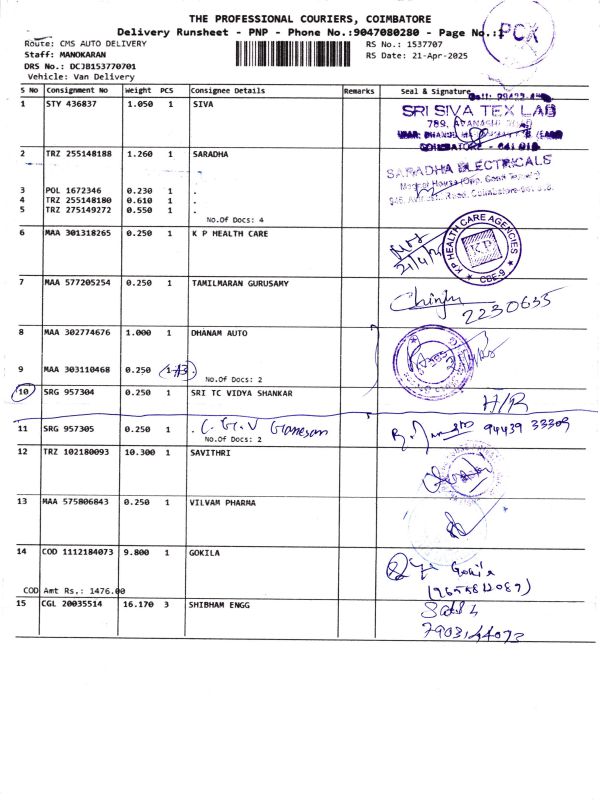 THE PROFESSIONAL COURIERS, COIMBATORE
Delivery Runsheet - PNP - Phone No.:9047080280 - Page No.:1
PCX
Route: CMS AUTO DELIVERY
RS No.: 1537707
Staff: MANOKARAN
RS Date: 21-Apr-2025
DRS No.: DCJB153770701
Vehicle: Van Delivery
S No Consignment No Weight PCS Consignee Details Remarks Seal & Signature
1 STY 436837 1.050 1 SIVA
SRI SIVA TEX LAB
789, AVANASHI ROAD
COIMBATORE - 641 018
2 TRZ 255148188 1.260 1 SARADHA
SARADHA ELECTRICALS
3 POL 1672346 0.230 1 .
4 TRZ 255148180 0.610 1 .
5 TRZ 275149272 0.550 1 .
No.Of Docs: 4
6 MAA 301318265 0.250 1 K P HEALTH CARE
K P HEALTH CARE AGENCIES
KP
CBE-9
21/4/25
7 MAA 577205254 0.250 1 TAMILMARAN GURUSAMY
2230655
8 MAA 302774676 1.000 1 DHANAM AUTO
9 MAA 303110468 0.250 1
No.Of Docs: 2
10 SRG 957304 0.250 1 SRI TC VIDYA SHANKAR
H/R
11 SRG 957305 0.250 1 . C. G. V Ganesan
94439 33309
No.Of Docs: 2
12 TRZ 102180093 10.300 1 SAVITHRI
13 MAA 575806843 0.250 1 VILVAM PHARMA
14 COD 1112184073 9.800 1 GOKILA
Gokila
COD Amt Rs.: 1476.00
15 CGL 20035514 16.170 3 SHIBHAM ENGG